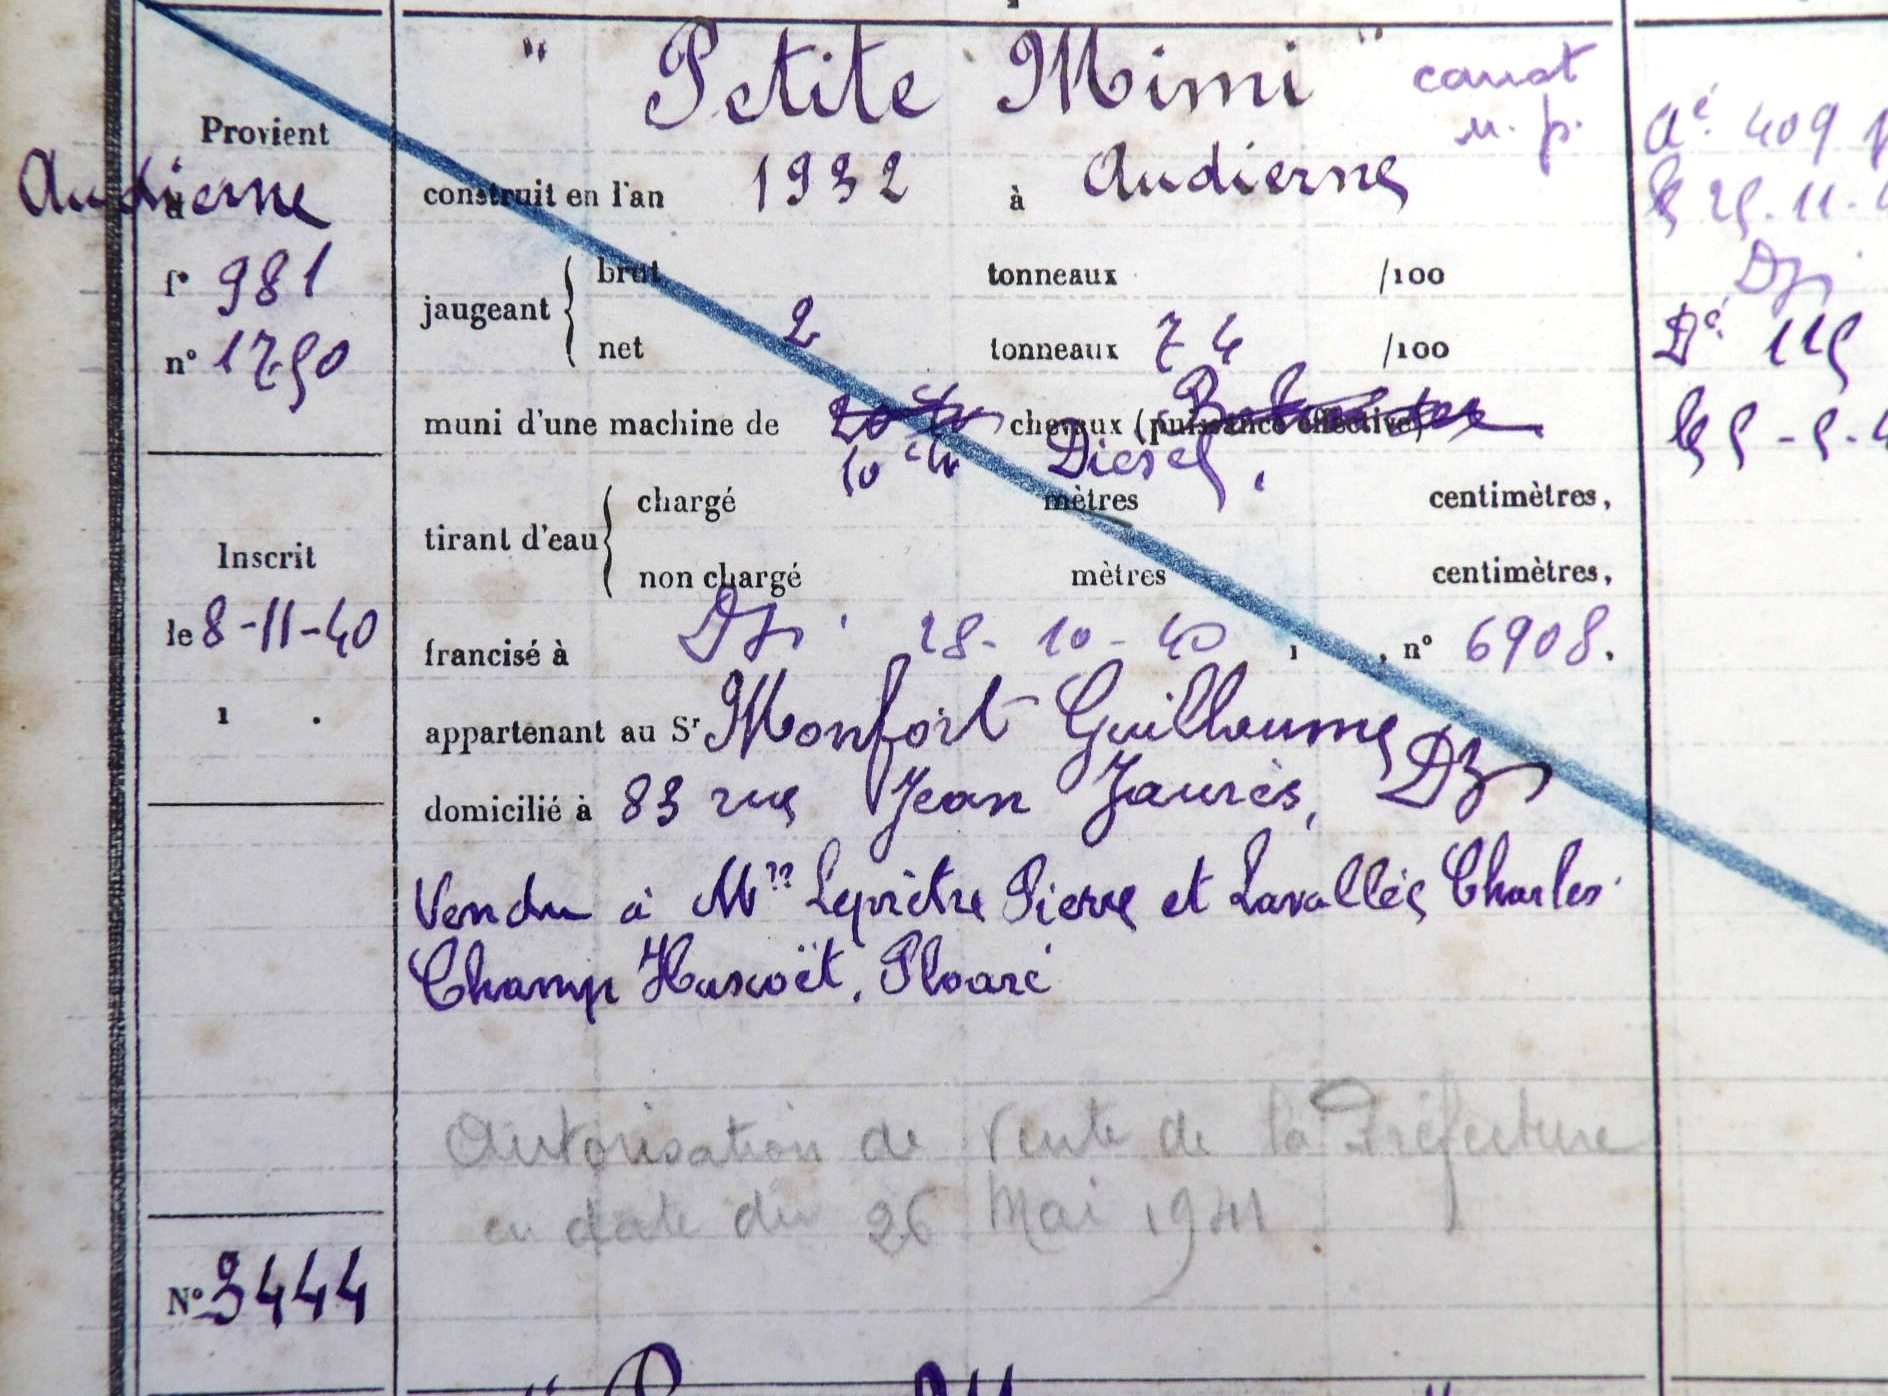 " Petite Mimi " canot
n. p.
Provient
à Audierne
f° 981
n° 1750
construit en l'an 1932 à Audierne
jaugeant brut tonneaux /100
net 2 tonneaux 74 /100
muni d'une machine de 20 cv chevaux (puissance effective)
10 cv Diesel.
tirant d'eau chargé mètres centimètres,
non chargé mètres centimètres,
Inscrit
le 8-11-40
francisé à Dz 28-10-40, n° 6908.
appartenant au Sr Monfort Guillaume
domicilié à 83 rue Jean Jaurès, Dz
Vendu à Mrs Leprêtre Pierre et Lavallée Charles
Champ Hascoët, Ploaré
Autorisation de Vente de la Préfecture
en date du 26 Mai 1941
N° 3444
Aé 409
le 25.11.4
Dz
Dé 115
le 5-5-4